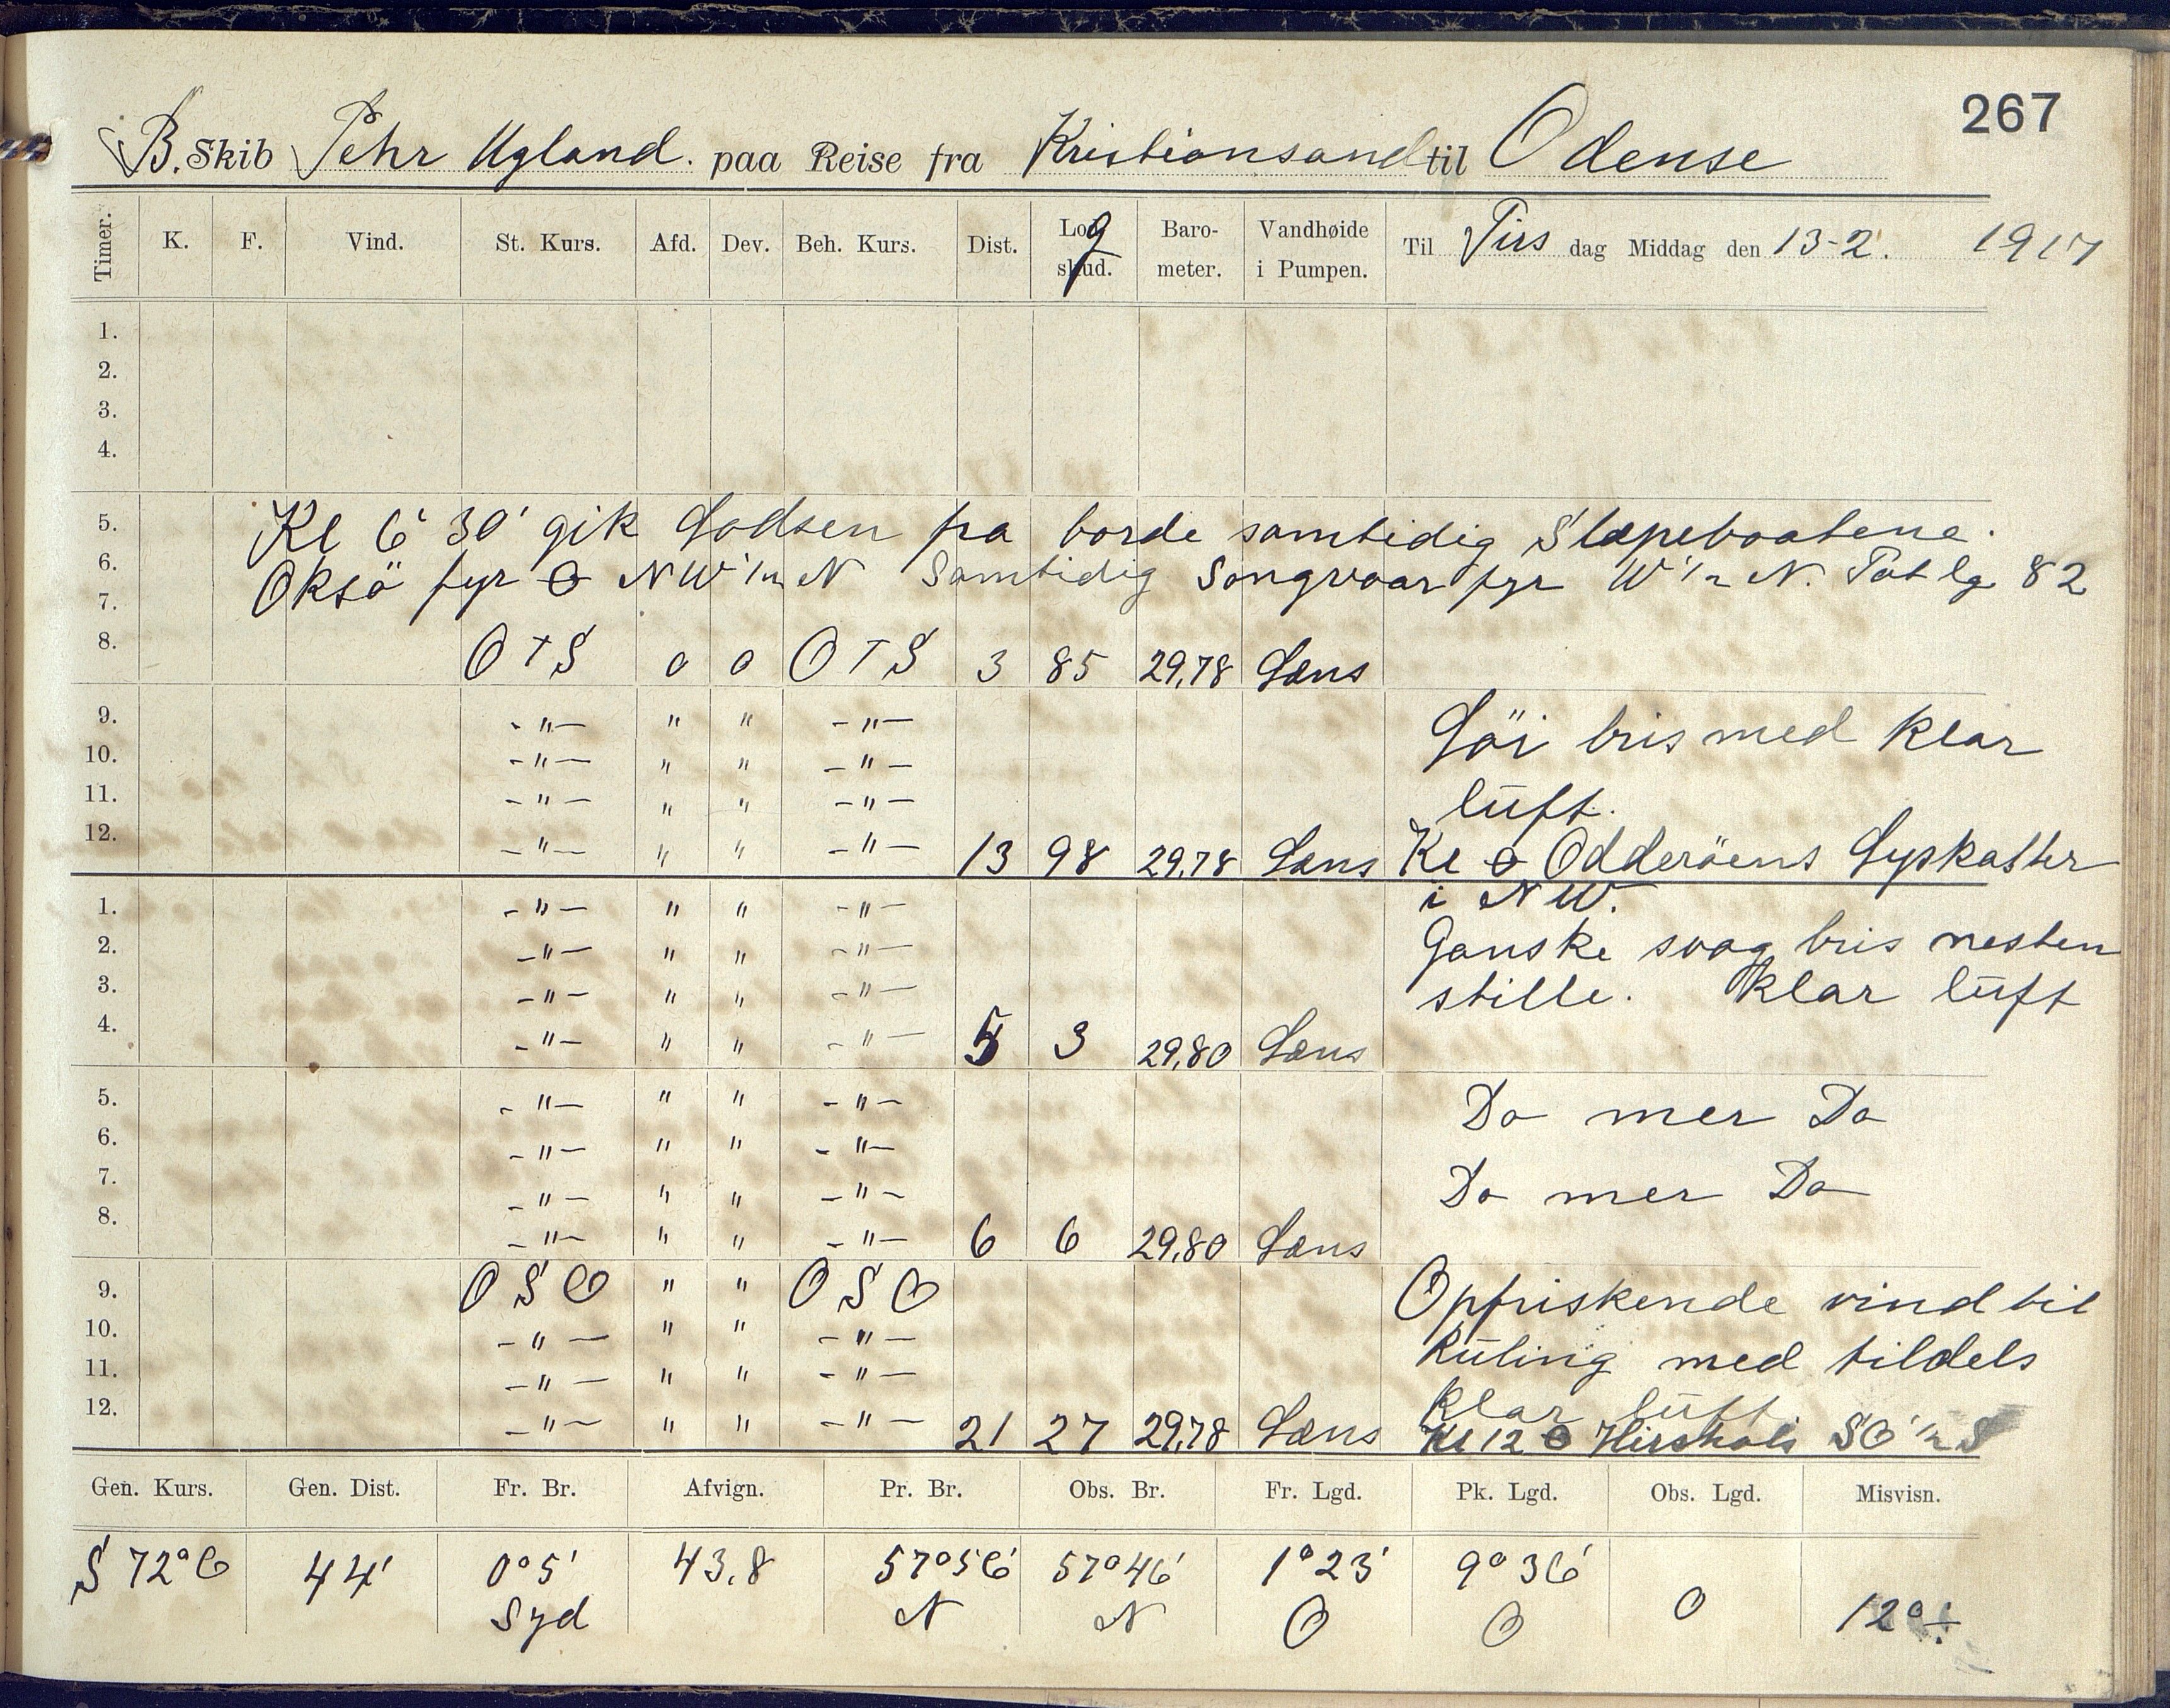 267
B. Skib Pehr Ugland. paa Reise fra Kristiansand til Odense
Timer. K. F. Vind. St. Kurs. Afd. Dev. Beh. Kurs. Dist. Log skud. Baro-meter. Vandhøide i Pumpen. Til Tirs dag Middag den 13-2. 1917
1.
2.
3.
4.
5. Kl 6 30' gik Lodsen fra borde samtidig Slæpebaatene.
6. Oksö fyr NW 1/2 N Samtidig Songvaar fyr W 1/2 N. Pat lg 82
7.
8. O T S 0 0 O T S 3 85 29,78 Læns
9. - " - " " - " - Löi bris med klar
10. - " - " " - " -
11. - " - " " - " - lüft.
12. - " - " " - " - 13 98 29,78 Læns Kl Odderöens Lyskaster
i NW.
1. - " - " " - " -
2. - " - " " - " - Ganske svag bris nesten
3. - " - " " - " - stille. Klar lüft
4. - " - " " - " - 5 3 29,80 Læns
5. - " - " " - " - Do mer Do
6. - " - " " - " -
7. - " - " " - " - Do mer Do
8. - " - " " - " - 6 6 29,80 Læns
9. O S O " " O S O Opfriskende vind til
10. - " - " " - " - Küling med tildels
11. - " - " " - " - klar lüft
12. - " - " " - " - 21 27 29,78 Læns Kl 12 Hirshols SO 1/2 S
Gen. Kurs. Gen. Dist. Fr. Br. Afvign. Pr. Br. Obs. Br. Fr. Lgd. Pk. Lgd. Obs. Lgd. Misvisn.
S 72° O 44' 0° 5' 43,8 57° 56' 57° 46' 1° 23' 9° 36' 0 12° ÷
Syd N N O O